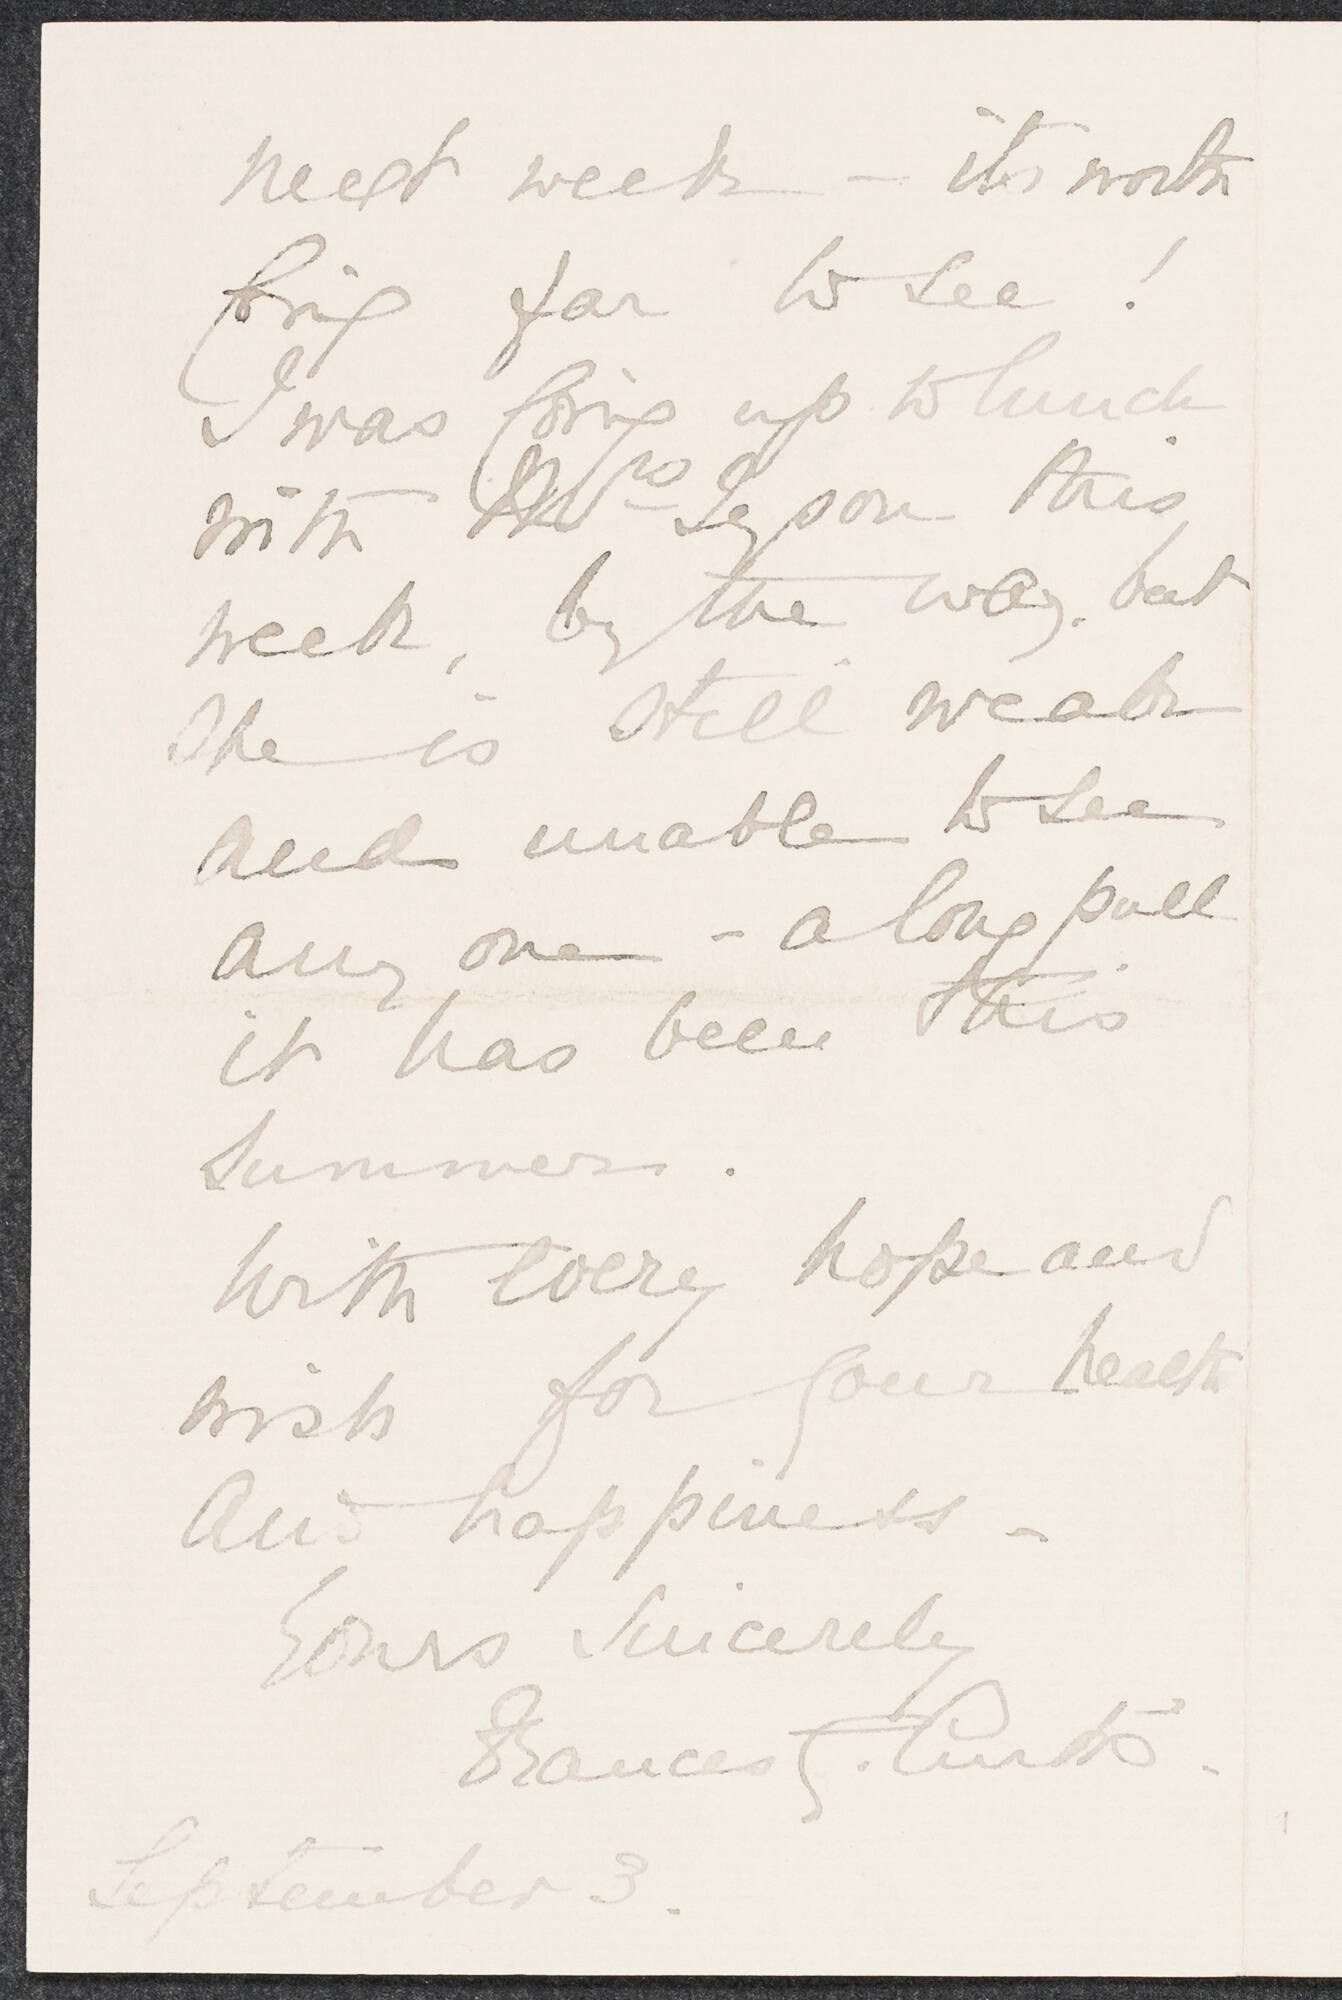 next week - its worth
going far to see!
I was going up to lunch
with Mrs Tyson this
week, by the way, but
she is still weak
and unable to see
any one - a long pull
it has been this
summer.
With every hope and
wish for your health
and happiness -
Yours sincerely
Frances G. Curtis.
September 3.